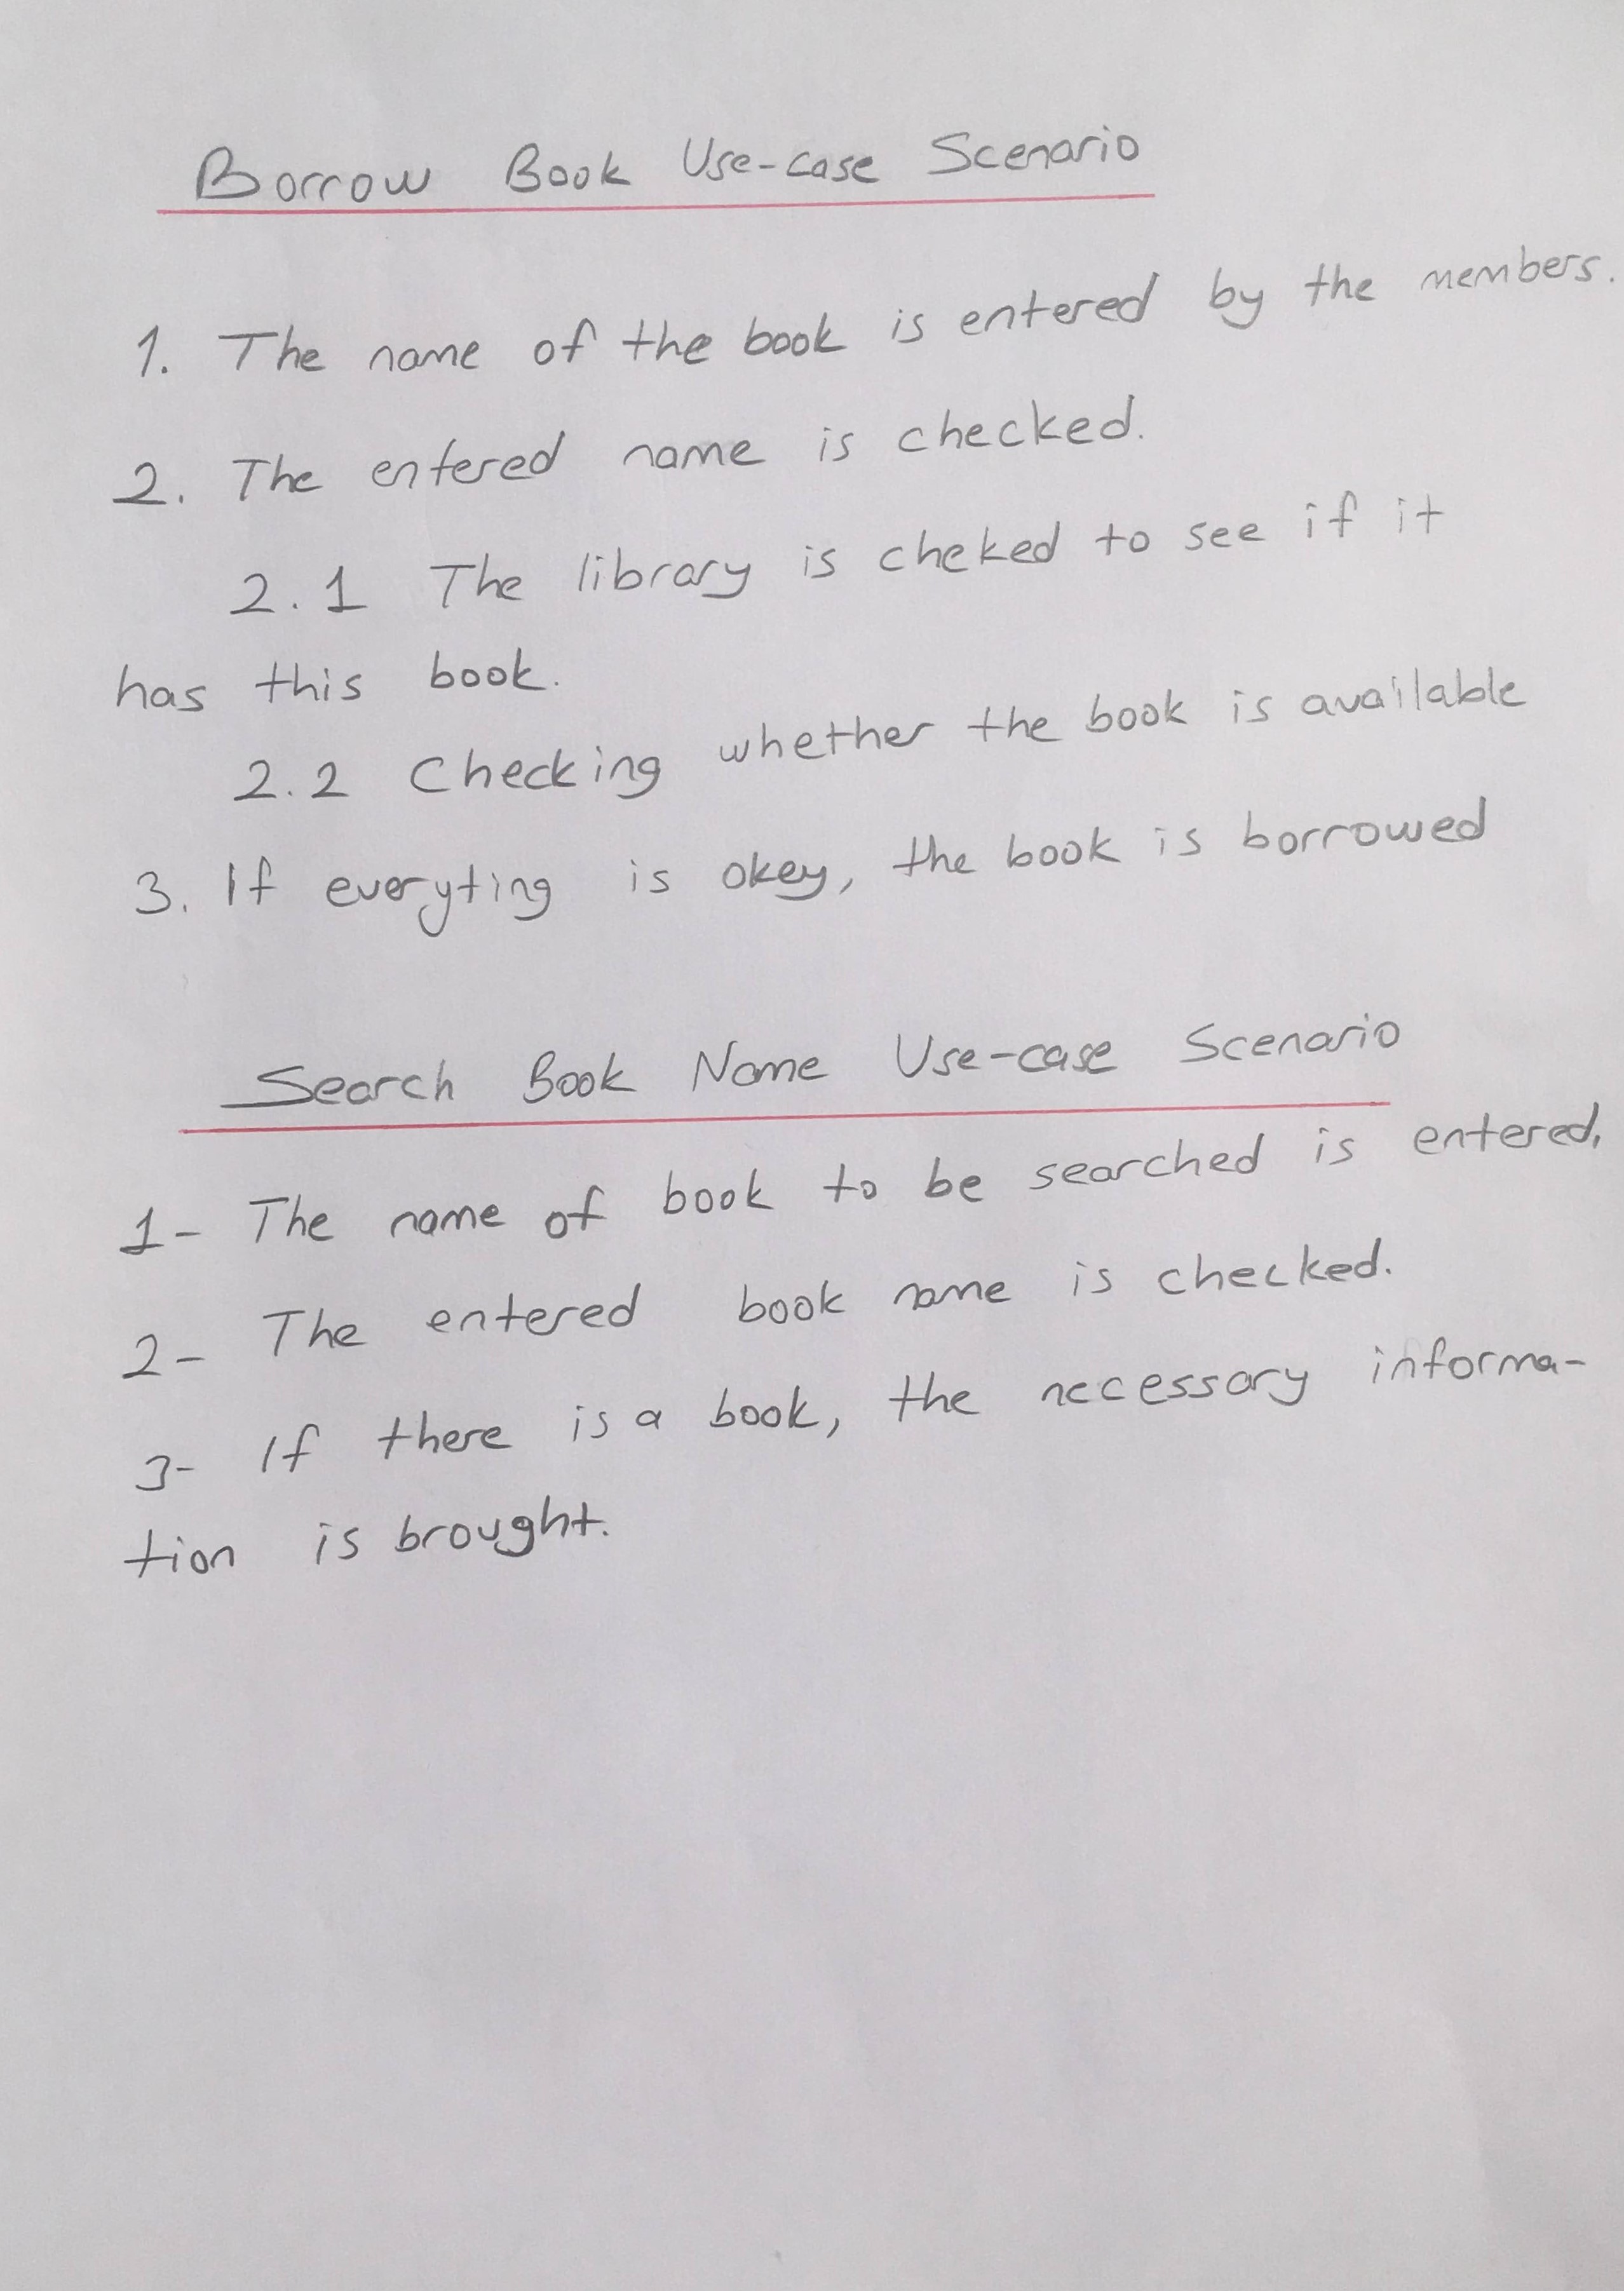 Borrow Book Use-case Scenario
1. The name of the book is entered by the members.
2. The entered name is checked.
2.1 The library is cheked to see if it
has this book.
2.2 Checking whether the book is available
3. If everyting is okey, the book is borrowed
Search Book Name Use-case Scenario
1- The name of book to be searched is entered.
2- The entered book name is checked.
3- If there is a book, the necessary informa-
tion is brought.